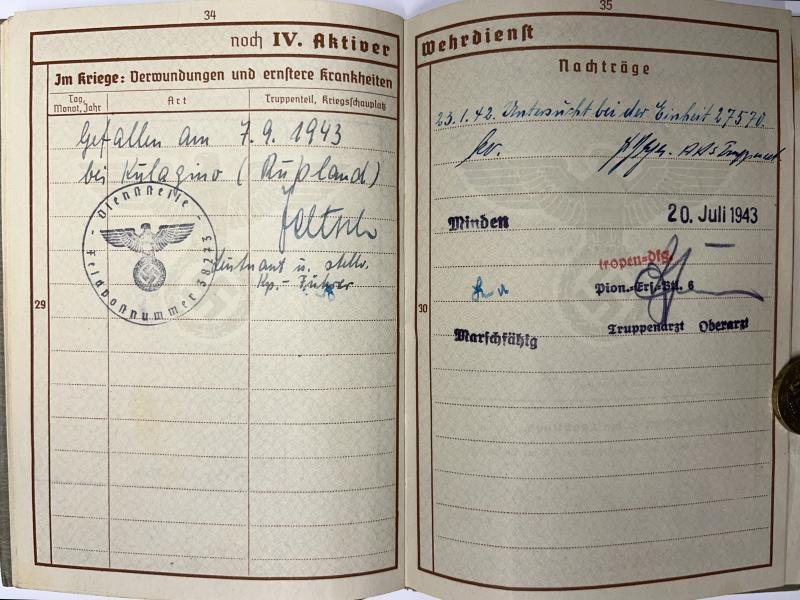 34
noch IV. Aktiver
Im Kriege: Verwundungen und ernstere Krankheiten
Tag, Monat, Jahr
Art
Truppenteil, Kriegsschauplatz
Gefallen am 7.9. 1943
bei Kulagino (Rußland)
Dienststelle
Feldpostnummer 38273
Leutnant u. stellv.
Kp.-Führer
29
35
Wehrdienst
Nachträge
23.1.42. Untersucht bei der Einheit 27570.
kv.
Minden 20. Juli 1943
tropen-dfg
Pion.-Ers.-Btl. 6
30
Marschfähig
Truppenarzt Oberarzt